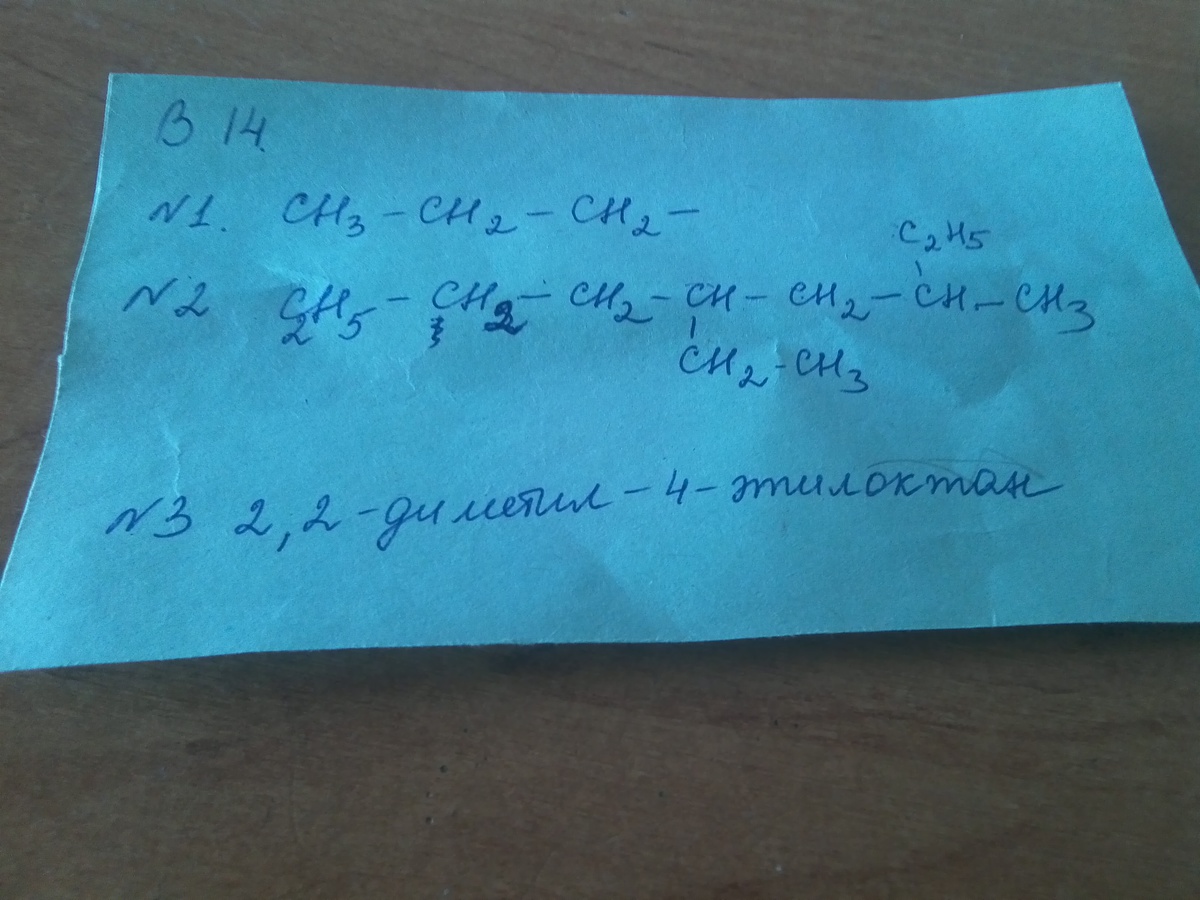 В 14.
№1. CH3 – CH2 – CH2 –
C2H5
№2 C2H5 – CH2 – CH2 – CH – CH2 – CH – CH3
CH2 – CH3
№3 2,2-диметил-4-этилоктан